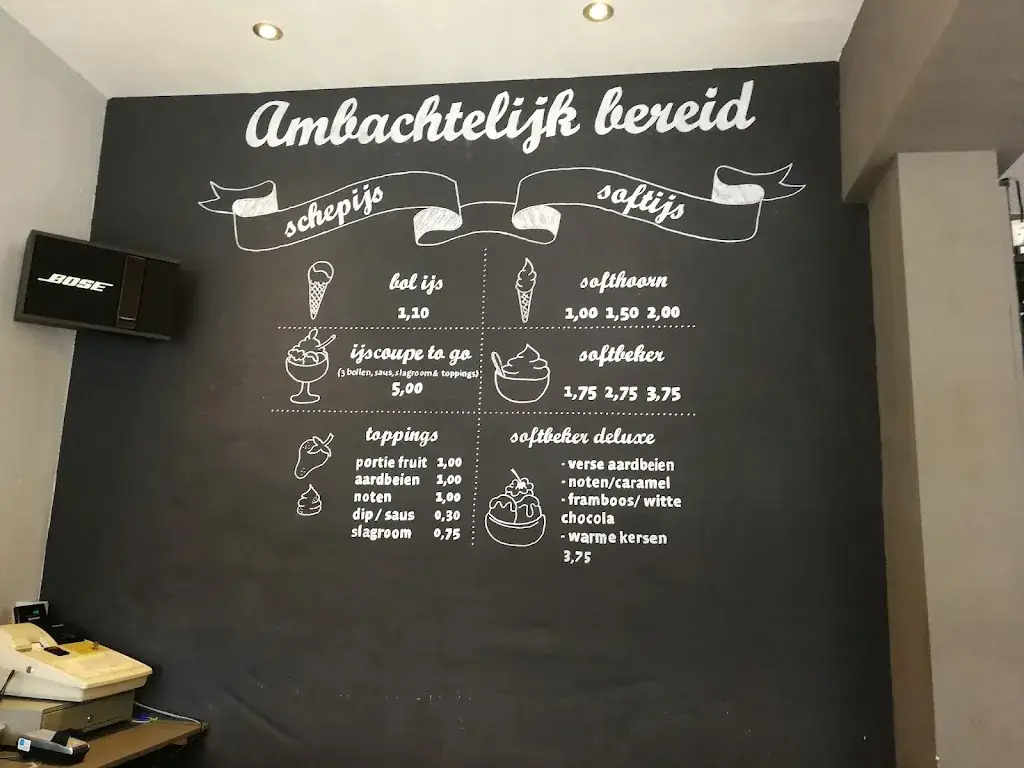 Ambachtelijk bereid
schepijs
softijs
BOSE
bol ijs
1,10
ijscoupe to go
(3 bollen, saus, slagroom & toppings)
5,00
toppings
portie fruit 1,00
aardbeien 1,00
noten 1,00
dip / saus 0,30
slagroom 0,75
softhoorn
1,00 1,50 2,00
softbeker
1,75 2,75 3,75
softbeker deluxe
- verse aardbeien
- noten/caramel
- framboos/ witte
chocola
- warme kersen
3,75